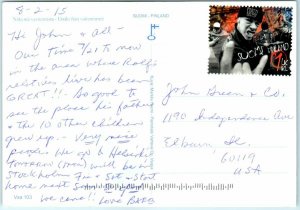 8-2-15
SUOMI - FINLAND
Hi John & all -
Our time 7/21 to now
in the area where Ralf's
relatives live has been
GREAT!! So good to
see the place his father
& the 10 other children
grew up - Very nice
people. We go to Helsinki
tomorrow (mon) will be in
Stockholm Fri & Sat & start
home next
we come! Love
SUOMI FINLAND
John Green & Co.
1190 Independence Ave
Elburn, Il.
60119
USA